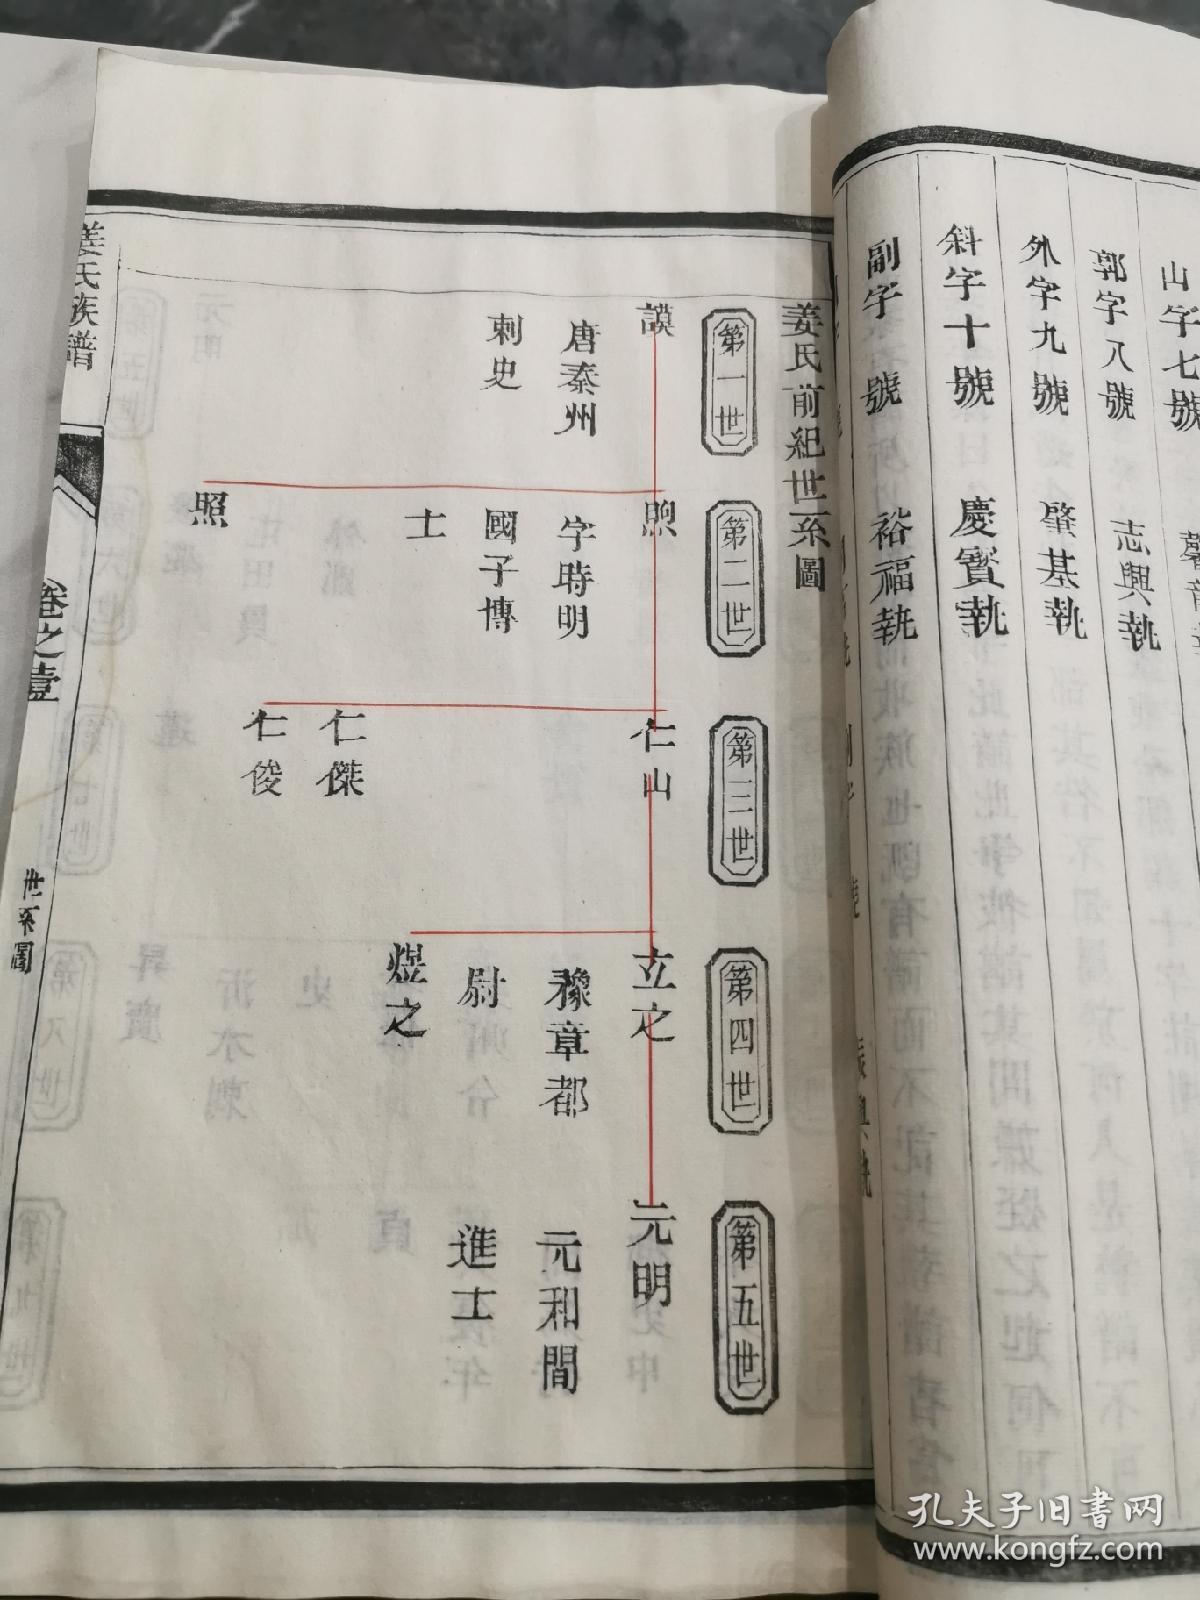 山字七號
郭字八號 志興執
外字九號 肇基執
斜字十號 慶寶執
副字 號 裕福執
姜氏前紀世系圖
第一世
謨
唐泰州
刺史
第二世
煦
字時明
國子博
士
照
第三世
仁山
仁傑
仁俊
第四世
立之
豫章都
尉
煜之
第五世
元明
元和間
進士
姜氏族譜
卷之壹
世系圖
孔夫子旧书网
www.kongfz.com